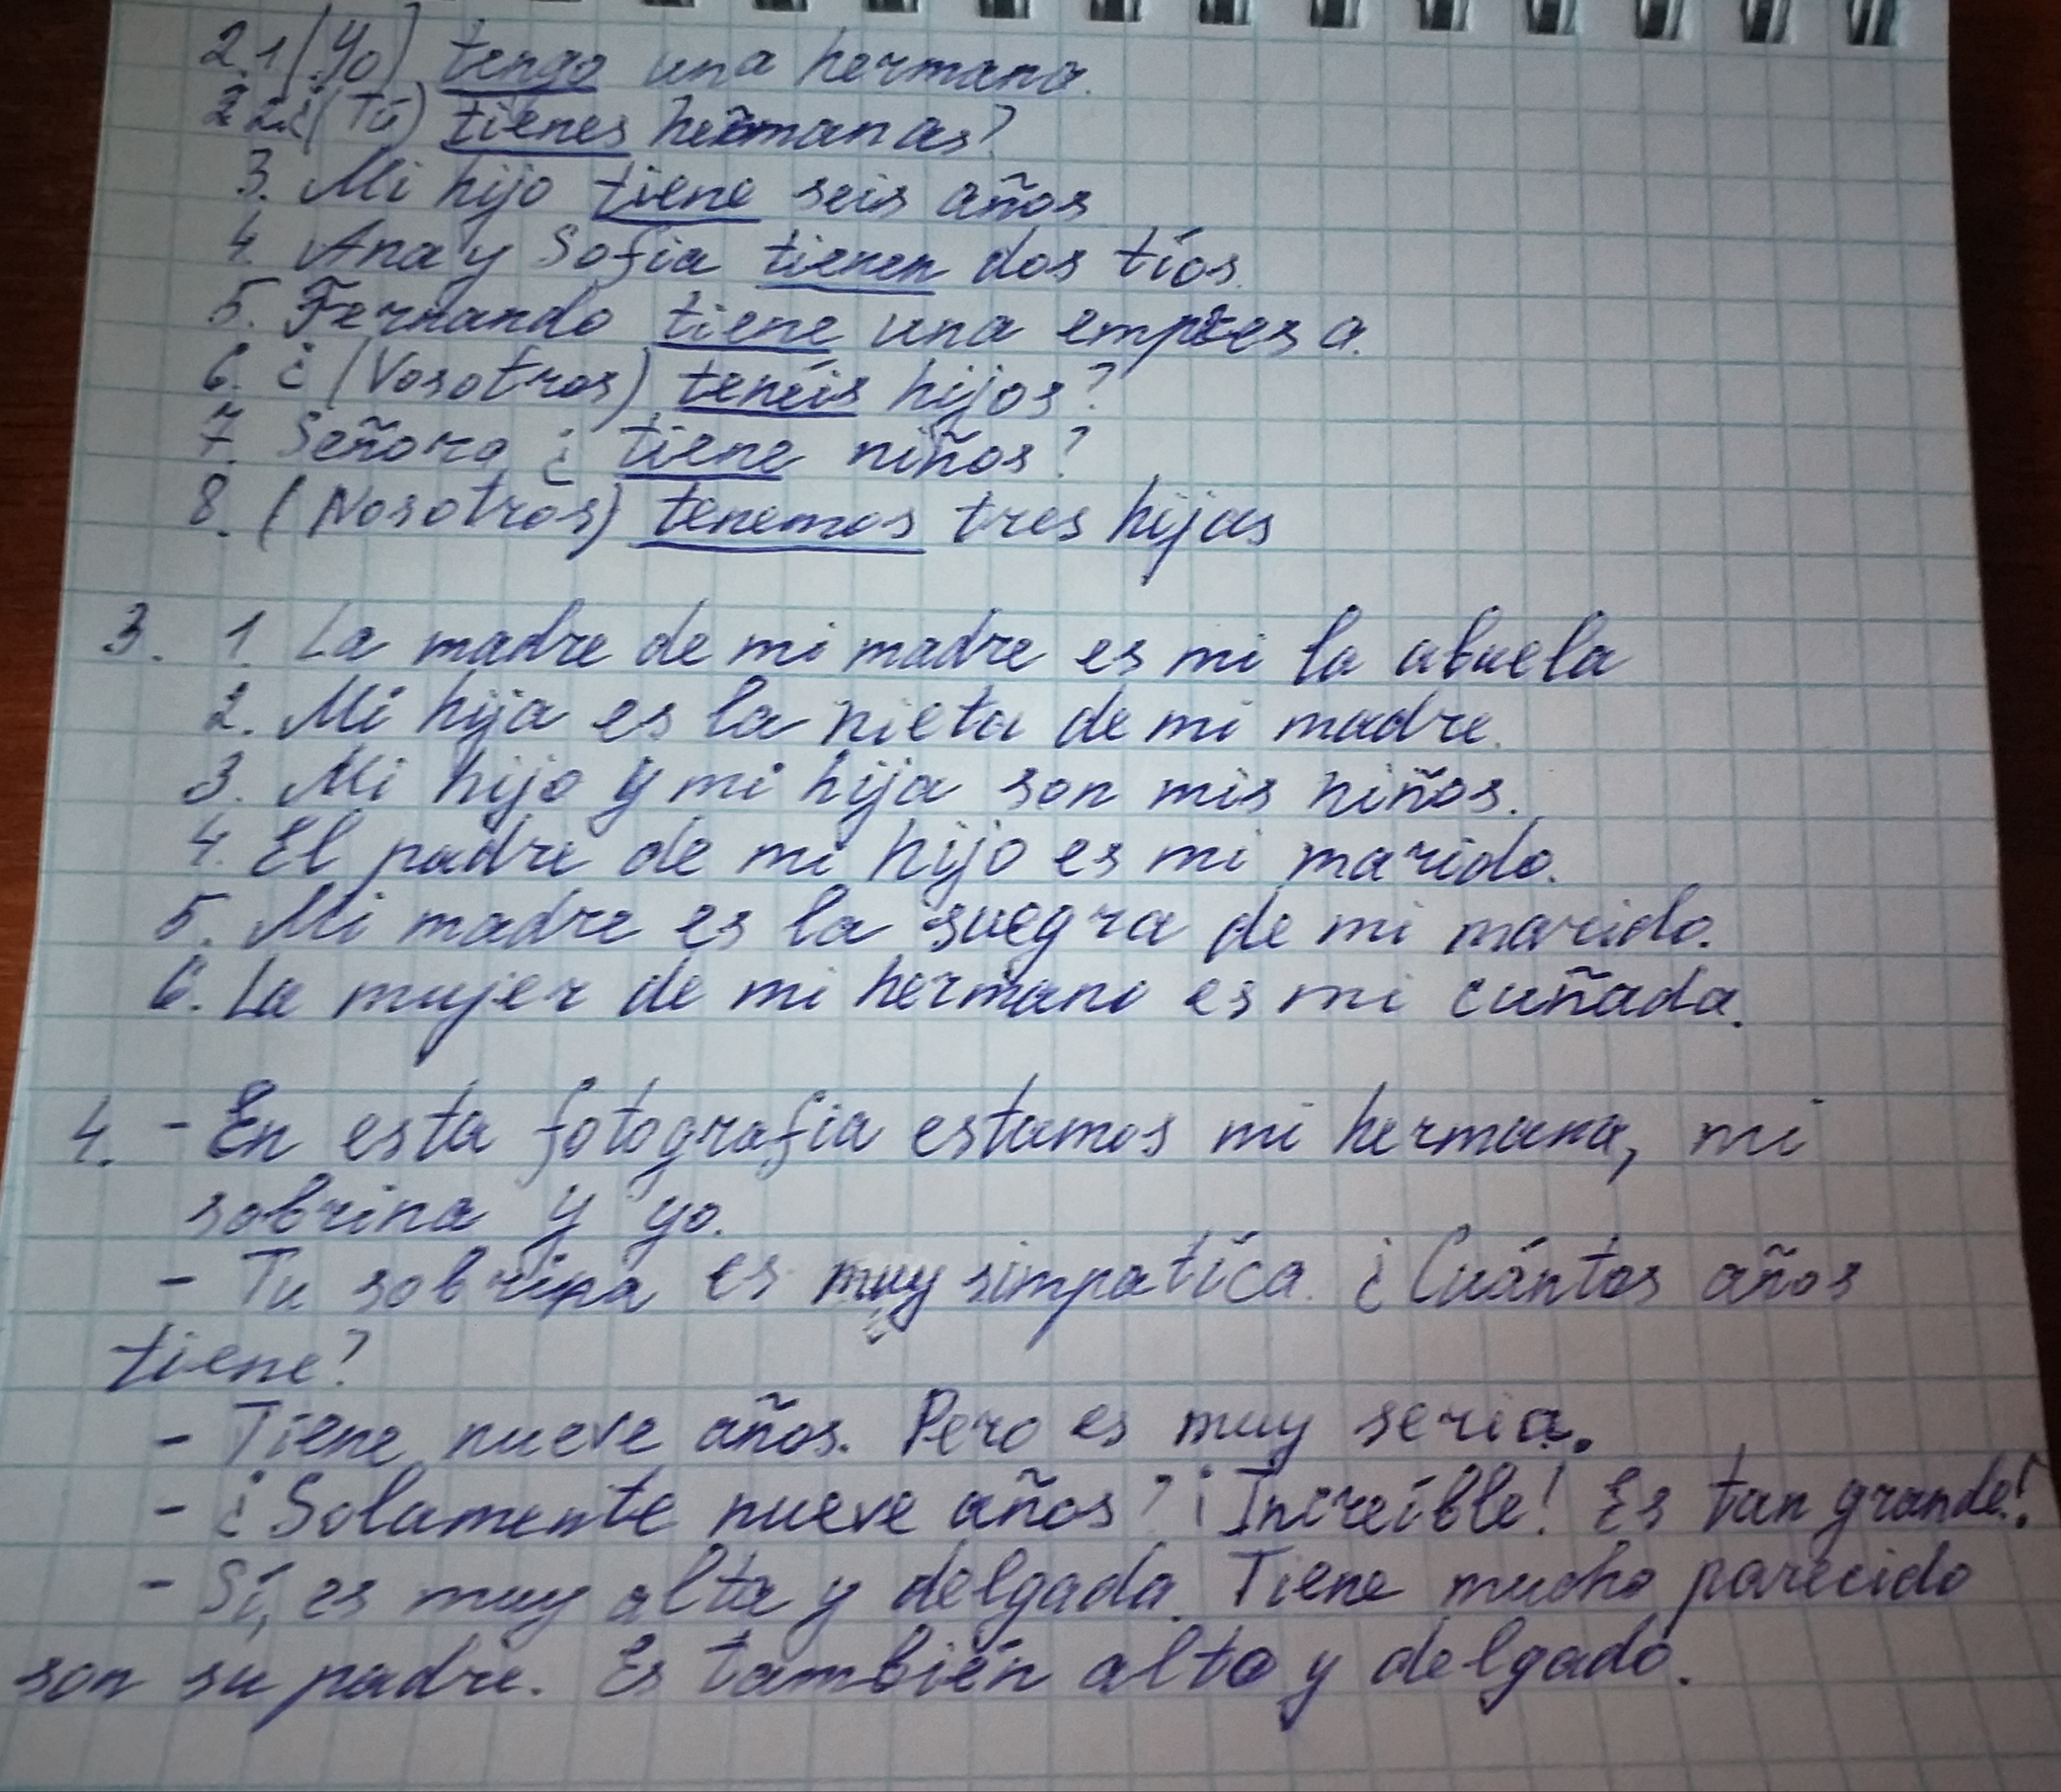 2.1 (Yo) tengo una hermana.
2 2. ¿(Tú) tienes hermanas?
3. Mi hijo tiene seis años
4. Ana y Sofia tienen dos tíos.
5. Fernando tiene una empresa.
6. ¿(Vosotros) tenéis hijos?
7. Señora ¿tiene niños?
8. (Nosotros) tenemos tres hijas
3. 1. La madre de mi madre es mi la abuela
2. Mi hija es la nieta de mi madre.
3. Mi hijo y mi hija son mis niños.
4. El padre de mi hijo es mi marido.
5. Mi madre es la suegra de mi marido.
6. La mujer de mi hermano es mi cuñada.
4. - En esta fotografia estamos mi hermana, mi
sobrina y yo.
- Tu sobrina es muy simpatíca. ¿Cuántos años
tiene?
- Tiene nueve años. Pero es muy seria.
- ¿Solamente nueve años? ¡Increíble! Es tan grande!
- Sí, es muy alta y delgada. Tiene mucho parecido
son su padre. Es también alto y delgado.